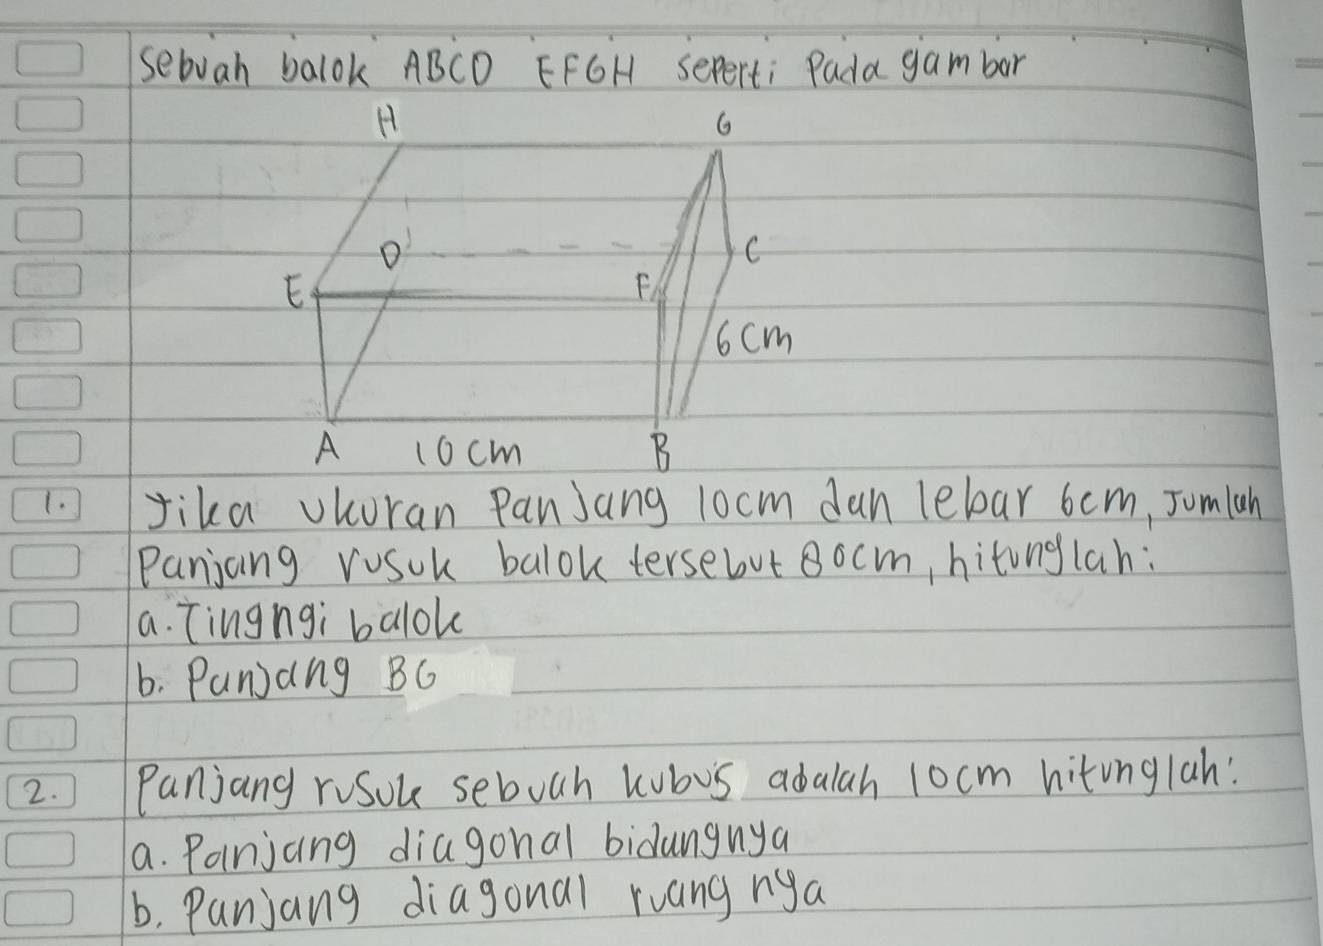 Sebuah balok ABCD EFGH seperti Pada gambar
H G
D C
E F
6 cm
A 10 cm B
1. Jika ukuran Panjang 10cm dan lebar 6cm, Jumlah
Panjang rusuk balok tersebut 80cm, hitunglah:
a. Tingngi balok
b. Panjang BG
2. Panjang rusuk sebuah kubus adalah 10cm hitunglah:
a. Panjang diagonal bidangnya
b. Panjang diagonal ruang nya